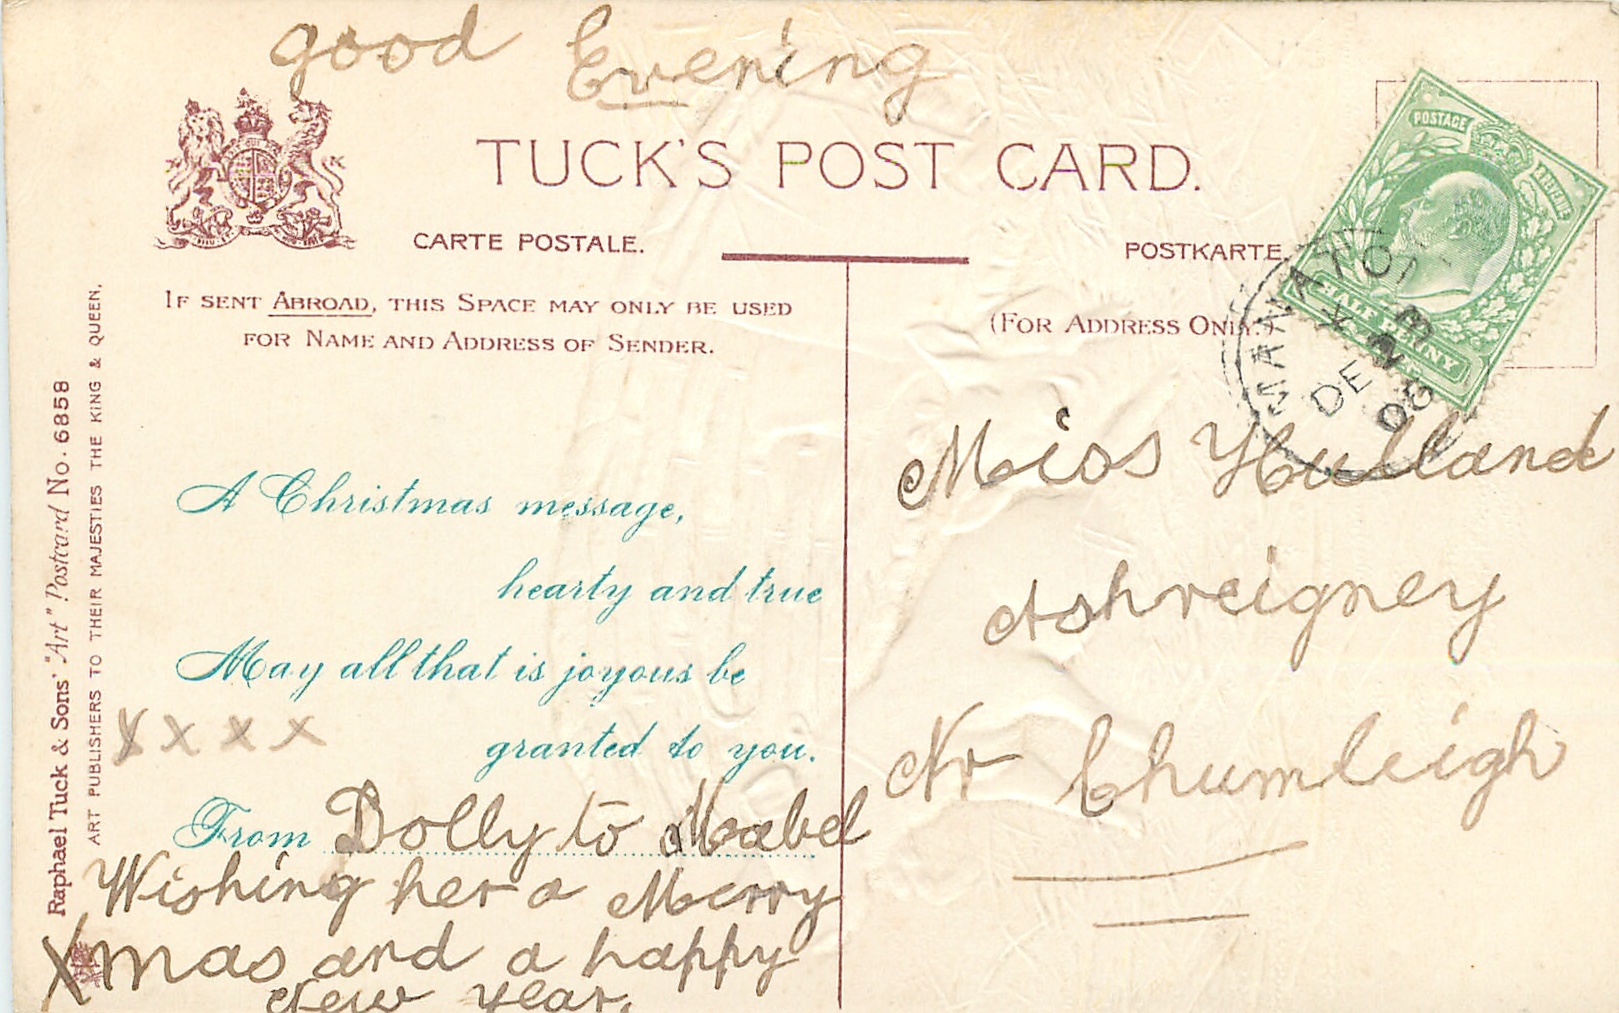 good Evening
TUCK'S POST CARD.
CARTE POSTALE.
POSTKARTE.
IF SENT ABROAD, THIS SPACE MAY ONLY BE USED
FOR NAME AND ADDRESS OF SENDER.
(FOR ADDRESS ONLY.)
POSTAGE
REVENUE
HALF PENNY
MANATON
DE
06
Raphael Tuck & Sons' "Art" Postcard No. 6858
ART PUBLISHERS TO THEIR MAJESTIES THE KING & QUEEN.
A Christmas message,
hearty and true
May all that is joyous be
granted to you.
x x x x
From Dolly to Mabel
Wishing her a Merry
Xmas and a happy
New Year.
Miss Hulland
Ashreigney
Nr Chumleigh